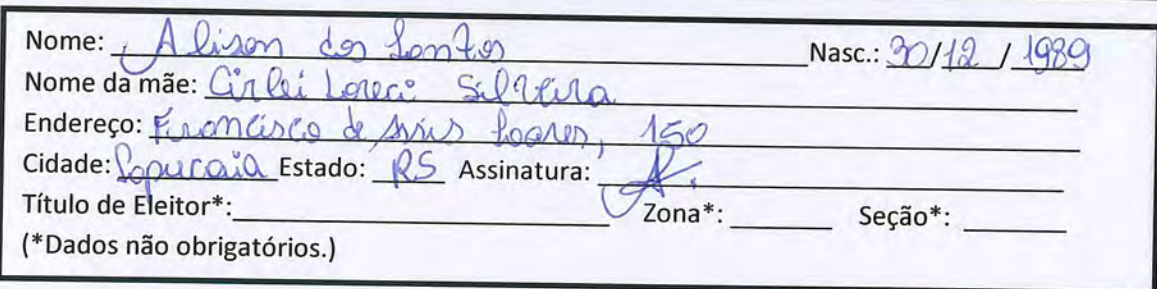 Nome: Alison dos Santos Nasc.: 30/12/1989
Nome da mãe: Cirlei Loreci Silveira
Endereço: Francisco de Assis Soares, 150
Cidade: Sapucaia Estado: RS Assinatura: A.
Título de Eleitor*: Zona*: Seção*:
(*Dados não obrigatórios.)